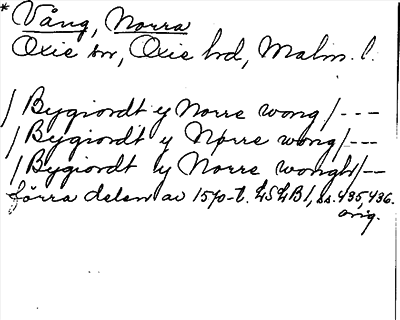 * Vång, Norra
Oxie sn, Oxie hd, Malm. l.
/ Bygiordt y Norre wong /---
/ Bygiordt y Norre wong /---
/ Bygiordt y Norre wongh /--
förra delen av 1570-t. LSLB 1, ss. 435, 436.
orig.